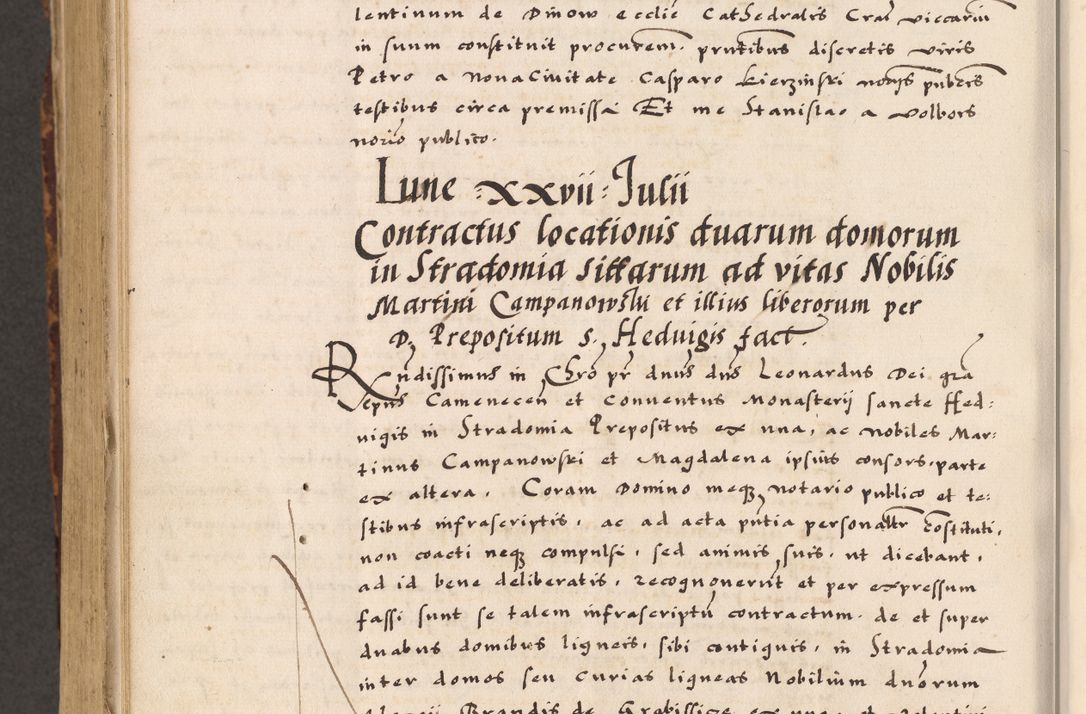 lentinum de Dinow ecclie Cathedralis Crac viccarium
in suum constituit procurem. pntibus discretis viris
Petro a Nova Civitate Casparo Kierzinski notijs pubcis
testibus circa premissa Et me Stanislao a Volbors
norio publico.
Lune XXVII Julii
Contractus locationis duarum domorum
in Stradomia sittarum ad vitas Nobilis
Martini Campanowski et illius liberorum per
D. Prepositum S. Hedvigis fact.
Rndissimus in Chro pr dnus dns Leonardus Dei gra
epus Camenecen et Conventus Monasterij sancte Hed:
vigis in Stradomia Prepositus ex una, ac Nobiles Mar:
tinus Campanowski et Magdalena ipsius consors, parte
ex altera. Coram Domino meq, notario publico et te:
stibus infrascriptis, ac ad acta pntia personaltr costituti,
non coacti neq compulsi, sed animis suis, ut dicebant,
ad id bene deliberatis, recognoverunt et per expressum
fassi sunt se talem infrascriptu contractum de et super
duabus domibus ligneis, sibi contiguis, in Stradomia
inter domos seu Curias ligneas Nobilium duorum
Brandis de ex una et